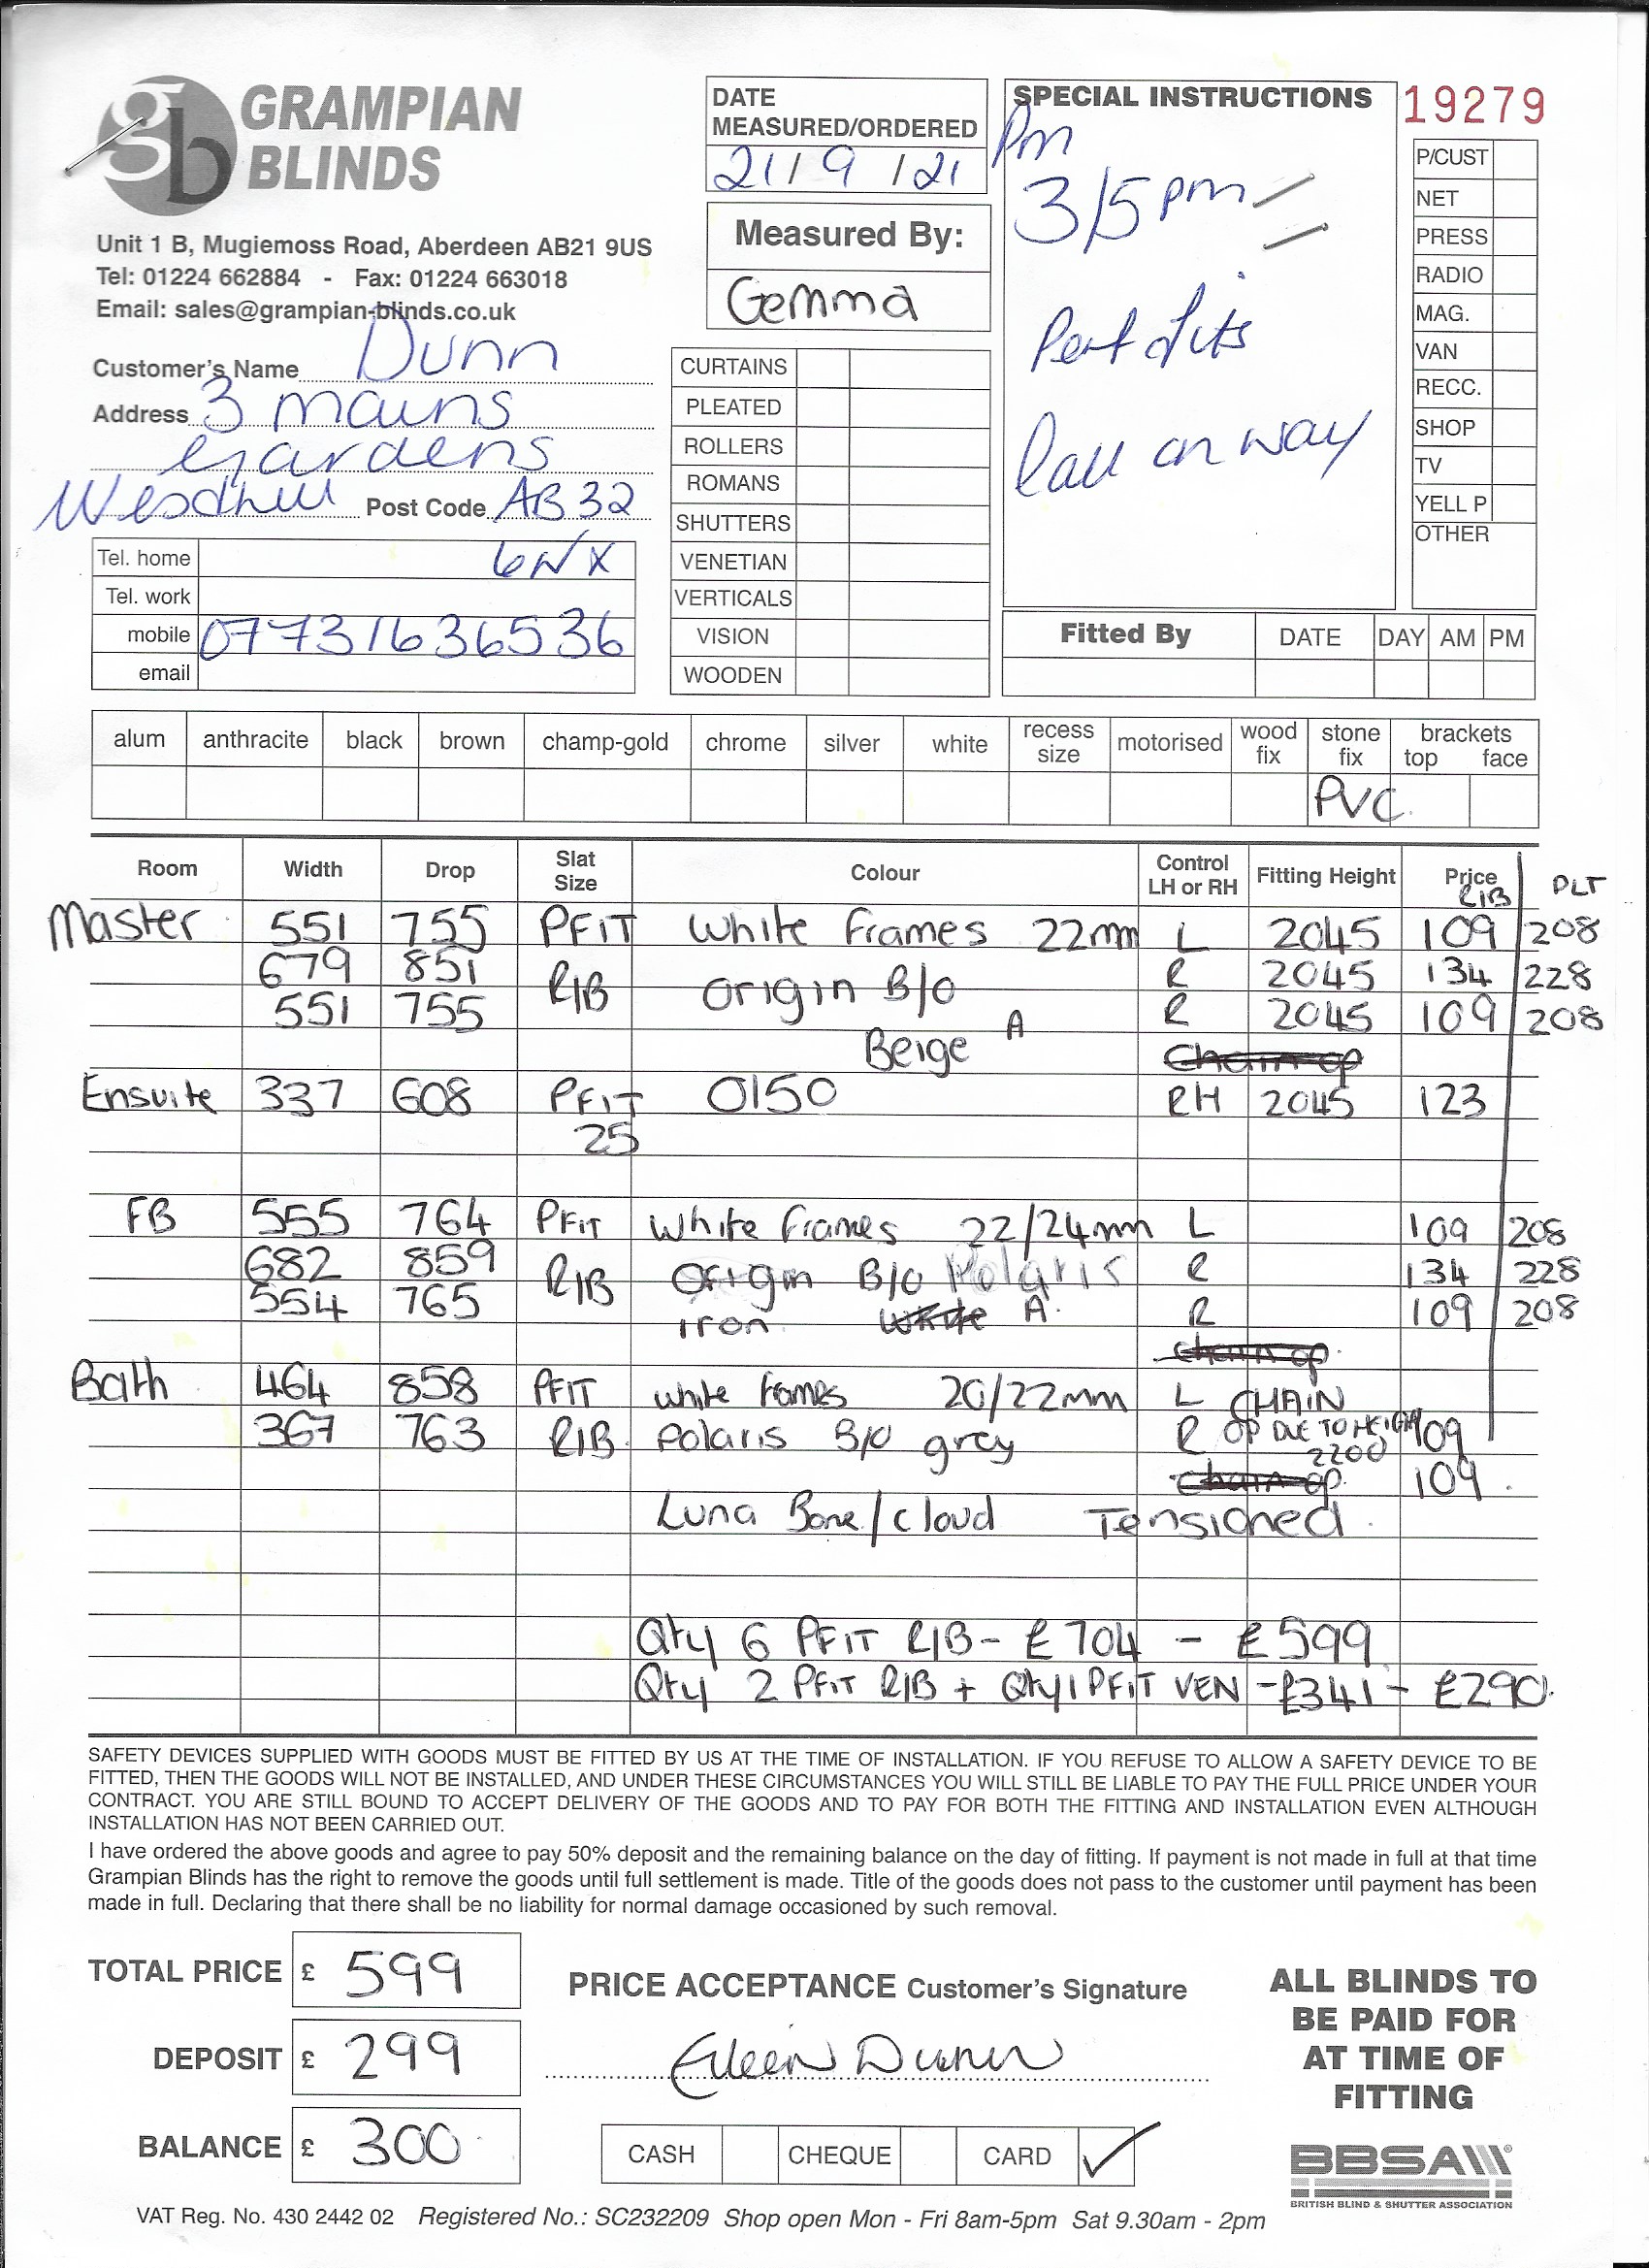 GRAMPIAN
BLINDS
Unit 1 B, Mugiemoss Road, Aberdeen AB21 9US
Tel: 01224 662884 - Fax: 01224 663018
Email: sales@grampian-blinds.co.uk
DATE
MEASURED/ORDERED
21/9/21
Measured By:
Gemma
SPECIAL INSTRUCTIONS
Pm
3/5pm
Call on way
19279
P/CUST
NET
PRESS
RADIO
MAG.
VAN
RECC.
SHOP
TV
YELL P
OTHER
Customer's Name Dunn
Address 3 mains
Gardens
Westhill Post Code AB32
6NX
Tel. home
Tel. work
mobile 07731636536
email
CURTAINS
PLEATED
ROLLERS
ROMANS
SHUTTERS
VENETIAN
VERTICALS
VISION
WOODEN
Fitted By DATE DAY AM PM
alum anthracite black brown champ-gold chrome silver white recess size motorised wood fix stone fix brackets top face
PVC
Room Width Drop Slat Size Colour Control LH or RH Fitting Height Price RIB PLT
Master 551 755 PFIT White Frames 22mm L 2045 109 208
679 851 R 2045 134 228
RIB Origin B/O
551 755 R 2045 109 208
Beige A
Chain op
Ensuite 337 608 PFIT 0150 RH 2045 123
25
FB 555 764 PFIT White Frames 22/24mm L 109 208
682 859 RIB Origin B/O Polaris R 134 228
554 765 Iron White A R 109 208
Chain op
Bath 464 858 PFIT White frames 20/22mm L CHAIN
367 763 RIB Polaris B/O grey R OP DUE TO HEIGHT 109
2200
Chain op 109
Luna Bone/cloud Tensioned
Qty 6 PFIT RIB - £704 - £599
Qty 2 PFIT RIB + Qty 1 PFIT VEN - £341 - £290
SAFETY DEVICES SUPPLIED WITH GOODS MUST BE FITTED BY US AT THE TIME OF INSTALLATION. IF YOU REFUSE TO ALLOW A SAFETY DEVICE TO BE
FITTED, THEN THE GOODS WILL NOT BE INSTALLED, AND UNDER THESE CIRCUMSTANCES YOU WILL STILL BE LIABLE TO PAY THE FULL PRICE UNDER YOUR
CONTRACT. YOU ARE STILL BOUND TO ACCEPT DELIVERY OF THE GOODS AND TO PAY FOR BOTH THE FITTING AND INSTALLATION EVEN ALTHOUGH
INSTALLATION HAS NOT BEEN CARRIED OUT.
I have ordered the above goods and agree to pay 50% deposit and the remaining balance on the day of fitting. If payment is not made in full at that time
Grampian Blinds has the right to remove the goods until full settlement is made. Title of the goods does not pass to the customer until payment has been
made in full. Declaring that there shall be no liability for normal damage occasioned by such removal.
TOTAL PRICE £ 599
DEPOSIT £ 299
BALANCE £ 300
PRICE ACCEPTANCE Customer's Signature
Eileen Dunn
CASH CHEQUE CARD ✓
ALL BLINDS TO
BE PAID FOR
AT TIME OF
FITTING
BBSA
BRITISH BLIND & SHUTTER ASSOCIATION
VAT Reg. No. 430 2442 02 Registered No.: SC232209 Shop open Mon - Fri 8am-5pm Sat 9.30am - 2pm